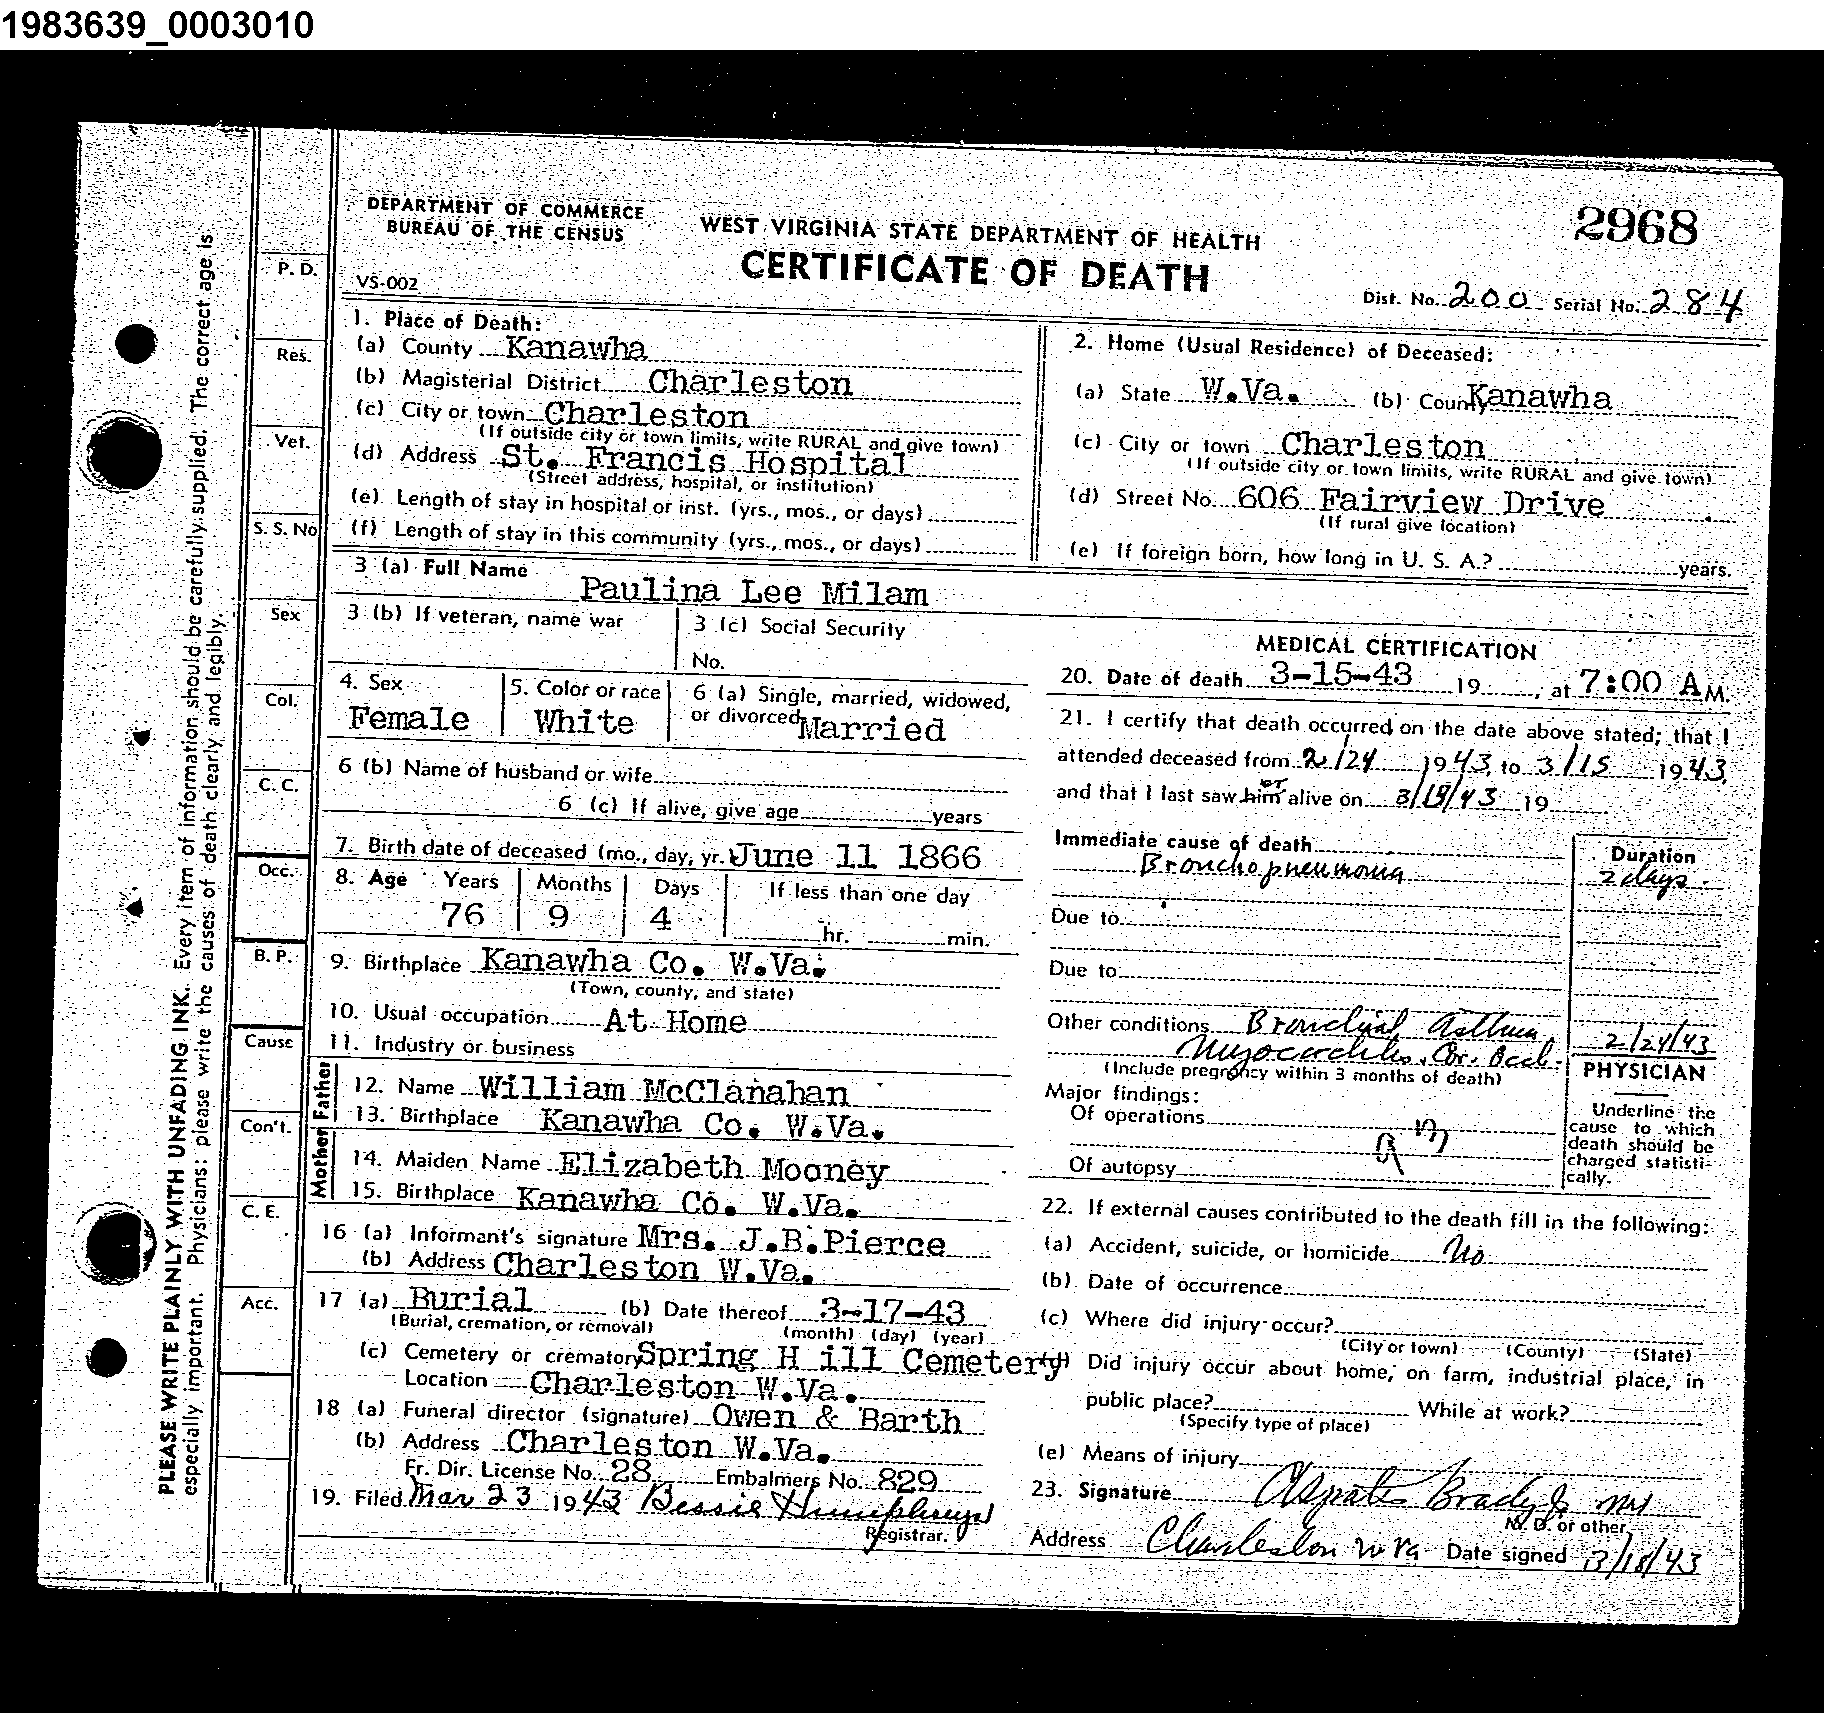 1983639_0003010
DEPARTMENT OF COMMERCE
BUREAU OF THE CENSUS
VS-002
WEST VIRGINIA STATE DEPARTMENT OF HEALTH
CERTIFICATE OF DEATH
2968
Dist. No. 200 Serial No. 284
1. Place of Death:
(a) County Kanawha
(b) Magisterial District Charleston
(c) City or town Charleston
(If outside city or town limits, write RURAL and give town)
(d) Address St. Francis Hospital
(Street address, hospital, or institution)
(e) Length of stay in hospital or inst. (yrs., mos., or days)
(f) Length of stay in this community (yrs., mos., or days)
2. Home (Usual Residence) of Deceased:
(a) State W.Va. (b) County Kanawha
(c) City or town Charleston
(If outside city or town limits, write RURAL and give town)
(d) Street No. 606 Fairview Drive
(If rural give location)
(e) If foreign born, how long in U. S. A.? years.
3 (a) Full Name Paulina Lee Milam
3 (b) If veteran, name war
3 (c) Social Security
No.
4. Sex
Female
5. Color or race
White
6 (a) Single, married, widowed,
or divorced Married
6 (b) Name of husband or wife
6 (c) If alive, give age years
7. Birth date of deceased (mo., day, yr. June 11 1866
8. Age Years Months Days If less than one day
76 9 4 hr. min.
9. Birthplace Kanawha Co. W.Va.
(Town, county, and state)
10. Usual occupation At Home
11. Industry or business
Father
12. Name William McClanahan
13. Birthplace Kanawha Co. W.Va.
Mother
14. Maiden Name Elizabeth Mooney
15. Birthplace Kanawha Co. W.Va.
16 (a) Informant's signature Mrs. J.B.Pierce
(b) Address Charleston W.Va.
17 (a) Burial (b) Date thereof 3-17-43
(Burial, cremation, or removal) (month) (day) (year)
(c) Cemetery or crematory Spring H ill Cemetery
Location Charleston W.Va.
18 (a) Funeral director (signature) Owen & Barth
(b) Address Charleston W.Va.
Fr. Dir. License No. 28 Embalmers No. 829
19. Filed Mar 23 1943 Bessie Humphreys
Registrar.
MEDICAL CERTIFICATION
20. Date of death 3-15-43 19 , at 7:00 A M.
21. I certify that death occurred on the date above stated; that I
attended deceased from 2/24 1943, to 3/15 1943,
and that I last saw him er alive on 3/15/43 19
Immediate cause of death
Bronchopneumonia
Duration
2 days
Due to
Due to
Other conditions Bronchial Asthma
Myocarditis. Cor. Occl.
2/24/43
(Include pregnancy within 3 months of death)
Major findings:
Of operations
Of autopsy
PHYSICIAN
Underline the
cause to which
death should be
charged statisti-
cally.
22. If external causes contributed to the death fill in the following:
(a) Accident, suicide, or homicide No
(b) Date of occurrence
(c) Where did injury occur?
(City or town) (County) (State)
(d) Did injury occur about home, on farm, industrial place, in
public place? While at work?
(Specify type of place)
(e) Means of injury
23. Signature Brady
M. D. or other
Address Charleston W Va Date signed 3/18/43
P. D.
Res.
Vet.
S. S. No
Sex
Col.
C. C.
Occ.
B. P.
Cause
Con't.
C. E.
Acc.
PLEASE WRITE PLAINLY WITH UNFADING INK. Every item of information should be carefully supplied. The correct age is
especially important. Physicians: please write the causes of death clearly and legibly.